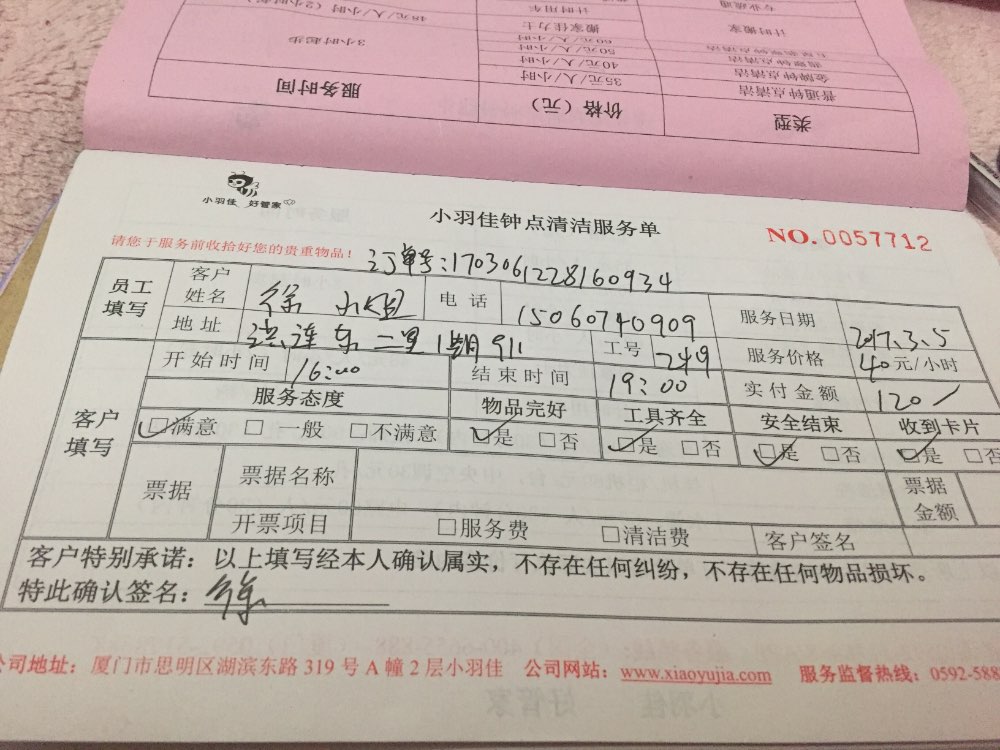 专业疏通 计时用车
计时搬家 搬家佳力士 48元/人/小时(2小时起)
60元/人/小时
50元/人/小时 3小时起步
金牌钟点清洁 40元/人/小时
普通钟点清洁 35元/人/小时
类型 价格(元) 服务时间
小羽佳 好管家
小羽佳钟点清洁服务单
NO.0057712
请您于服务前收拾好您的贵重物品!
订单号:1703061228160934
员工填写 客户姓名 徐 电话 15060740909 服务日期 2017.3.5
地址 洪莲东二里 911 工号 249 服务价格 40元/小时
客户填写 开始时间 16:00 结束时间 19:00 实付金额 120
服务态度 物品完好 工具齐全 安全结束 收到卡片
☑满意 □一般 □不满意 ☑是 □否 ☑是 □否 ☑是 □否 ☑是 □否
票据 票据名称 票据金额
开票项目 □服务费 □清洁费 客户签名
客户特别承诺:以上填写经本人确认属实,不存在任何纠纷,不存在任何物品损坏。
特此确认签名:徐
公司地址:厦门市思明区湖滨东路 319 号 A 幢 2 层小羽佳 公司网站:www.xiaoyujia.com 服务监督热线:0592-588